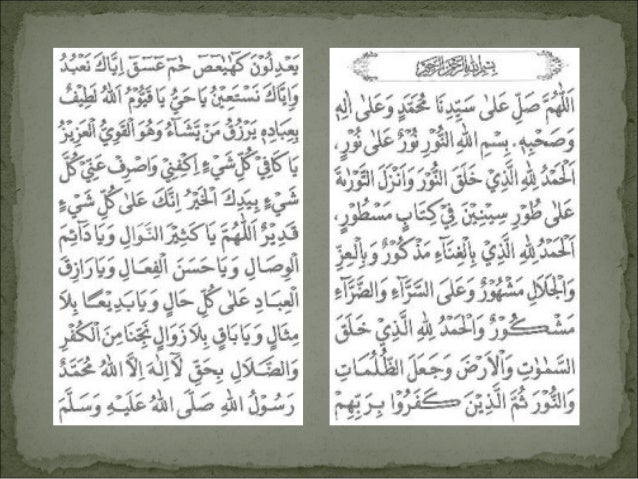 بِسْمِ اللهِ الرَّحْمٰنِ الرَّحِيْمِ
اَللّٰهُمَّ صَلِّ عَلٰى سَيِّدِنَا مُحَمَّدٍ وَعَلٰى اٰلِهٖ
وَصَحْبِهٖ. بِسْمِ اللهِ النُّوْرِ نُوْرٌ عَلٰى نُوْرٍ،
اَلْحَمْدُ لِلّٰهِ الَّذِيْ خَلَقَ النُّوْرَ وَاَنْزَلَ التَّوْرٰىةَ
عَلٰى طُوْرِ سِيْنِيْنَ فِيْ كِتَابٍ مَسْطُوْرٍ،
اَلْحَمْدُ لِلّٰهِ الَّذِيْ بِالْغِنَآءِ مَذْكُوْرٌ وَبِالْعِزِّ
وَالْجَلَالِ مَشْهُوْرٌ وَعَلَى السَّرَّآءِ وَالضَّرَّآءِ
مَشْكُوْرٌ وَالْحَمْدُ لِلّٰهِ الَّذِيْ خَلَقَ
السَّمٰوٰتِ وَالْاَرْضَ وَجَعَلَ الظُّلُمَاتِ
وَالنُّوْرَ ثُمَّ الَّذِيْنَ كَفَرُوْا بِرَبِّهِمْ
يَعْدِلُوْنَ كٓهٰيٰعٓصٓ حٰمٓ عٓسٓقٓ اِيَّاكَ نَعْبُدُ
وَاِيَّاكَ نَسْتَعِيْنُ يَا حَيُّ يَا قَيُّوْمُ اَللهُ لَطِيْفٌ
بِعِبَادِهٖ يَرْزُقُ مَنْ يَّشَآءُ وَهُوَ الْقَوِيُّ الْعَزِيْزُ
يَا كَافِيْ كُلِّ شَيْءٍ اِكْفِنِيْ وَاصْرِفْ عَنِّيْ كُلَّ
شَيْءٍ بِيَدِكَ الْخَيْرُ اِنَّكَ عَلٰى كُلِّ شَيْءٍ
قَدِيْرٌ اَللّٰهُمَّ يَا كَثِيْرَ النَّوَالِ وَيَا دَآئِمَ
الْوِصَالِ وَيَا حَسَنَ الْفِعَالِ وَيَا رَازِقَ
الْعِبَادِ عَلٰى كُلِّ حَالٍ وَيَا بَدِيْعًا بِلَا
مِثَالٍ وَيَا بَاقٍ بِلَا زَوَالٍ نَجِّنَا مِنَ الْكُفْرِ
وَالضَّلَالِ بِحَقِّ لَآ اِلٰهَ اِلَّا اللهُ مُحَمَّدٌ
رَسُوْلُ اللهِ صَلَّى اللهُ عَلَيْهِ وَسَلَّمَ